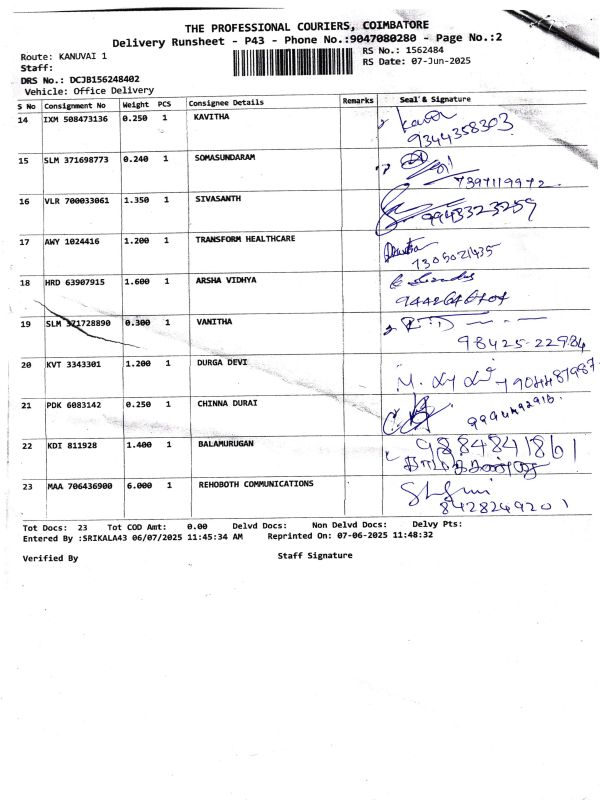 THE PROFESSIONAL COURIERS, COIMBATORE
Delivery Runsheet - P43 - Phone No.:9047080280 - Page No.:2
Route: KANUVAI 1
RS No.: 1562484
Staff:
RS Date: 07-Jun-2025
DRS No.: DCJB156248402
Vehicle: Office Delivery
S No Consignment No Weight PCS Consignee Details Remarks Seal & Signature
14 IXM 508473136 0.250 1 KAVITHA
9344358303
15 SLM 371698773 0.240 1 SOMASUNDARAM
7397119972
16 VLR 700033061 1.350 1 SIVASANTH
9943323259
17 AWY 1024416 1.200 1 TRANSFORM HEALTHCARE
7305021435
18 HRD 63907915 1.600 1 ARSHA VIDHYA
19 SLM 371728890 0.300 1 VANITHA
98425-22984
20 KVT 3343301 1.200 1 DURGA DEVI
21 PDK 6083142 0.250 1 CHINNA DURAI
22 KDI 811928 1.400 1 BALAMURUGAN
9884841861
23 MAA 706436900 6.000 1 REHOBOTH COMMUNICATIONS
8428249201
Tot Docs: 23 Tot COD Amt: 0.00 Delvd Docs: Non Delvd Docs: Delvy Pts:
Entered By :SRIKALA43 06/07/2025 11:45:34 AM Reprinted On: 07-06-2025 11:48:32
Verified By Staff Signature